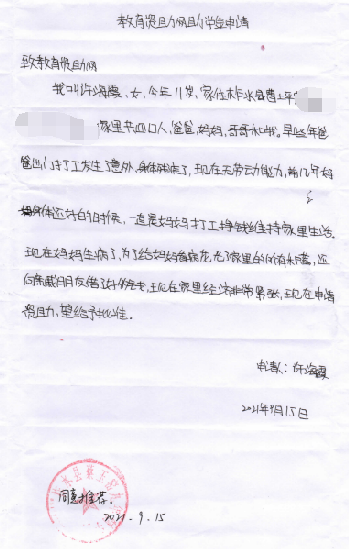 教育资助网助学金申请
致教育资助网
我叫许海霞、女、今年11岁，家住柞水县曹坪
家里共四口人，爸爸，妈妈，哥哥和我。早些年爸
爸出门打工发生了意外，身体残疾了，现在无劳动能力，前几年妈
妈身体还好的时候，一直是妈妈打工挣钱维持家里生活。
现在妈妈生病了，为了给妈妈看病花光了家里的所有积蓄，还
向亲戚朋友借了好些钱，现在家里经济非常紧张，现在申请
资助，望给予批准。
申请人：许海霞
2021年9月15日
同意推荐.
2021.9.15